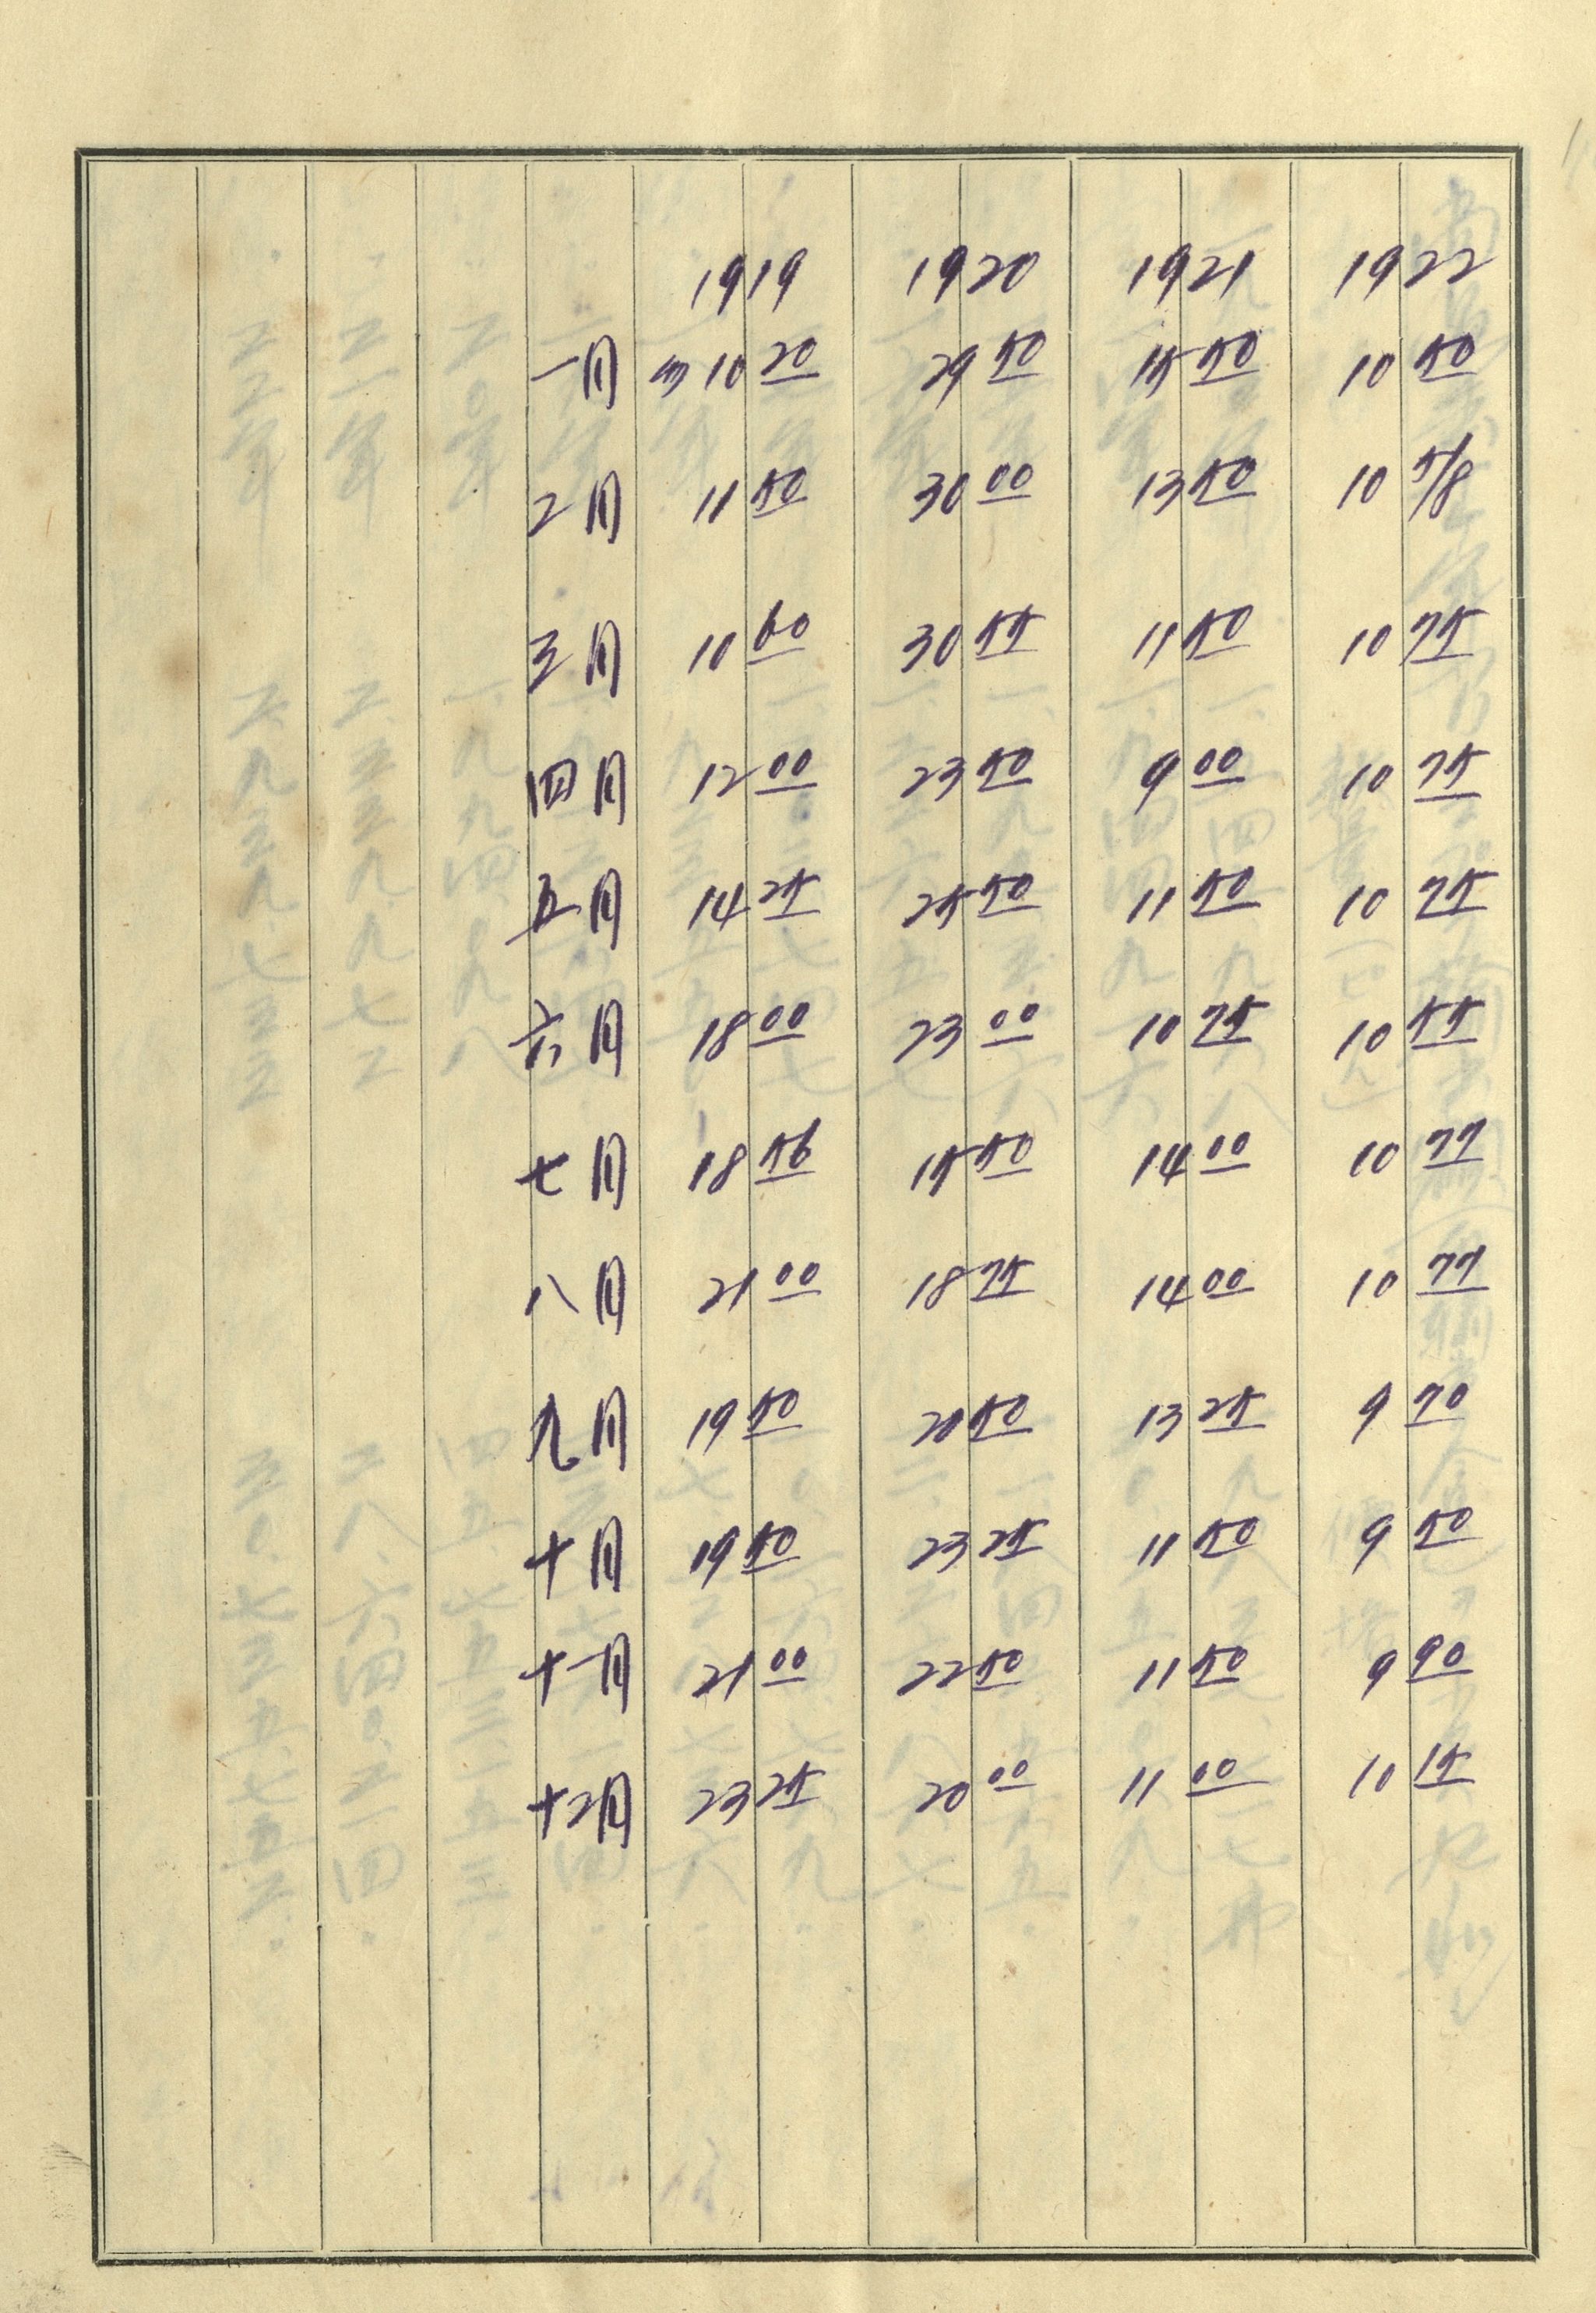 1919 1920 1921 1922
一月 10 20 29 50 15 50 10 50
2月 11 50 30 00 13 50 10 5/8
三月 10 60 30 55 11 50 10 75
四月 12 00 23 50 9 00 10 75
五月 14 25 25 50 11 50 10 75
六月 18 00 23 00 10 75 10 55
七月 18 56 15 50 14 00 10 77
八月 21 00 18 75 14 00 10 77
九月 19 50 20 50 13 25 9 70
十月 19 50 23 25 11 50 9 50
十一月 21 00 22 50 11 50 9 90
十2月 23 25 20 00 11 00 10 15